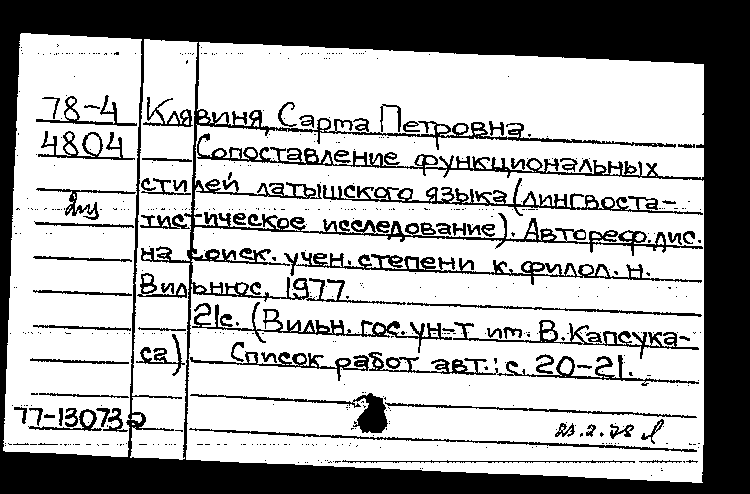 78-4 Клявиня, Сарта Петровна.
4804 Сопоставление функциональных
стилей латышского языка (лингвоста-
тистическое исследование). Автореф. дис.
на соиск. учен. степени к. филол. н.
Вильнюс, 1977.
21с. (Вильн. гос. ун-т им. В. Капсука-
са). Список работ авт.: с. 20-21.
77-13073